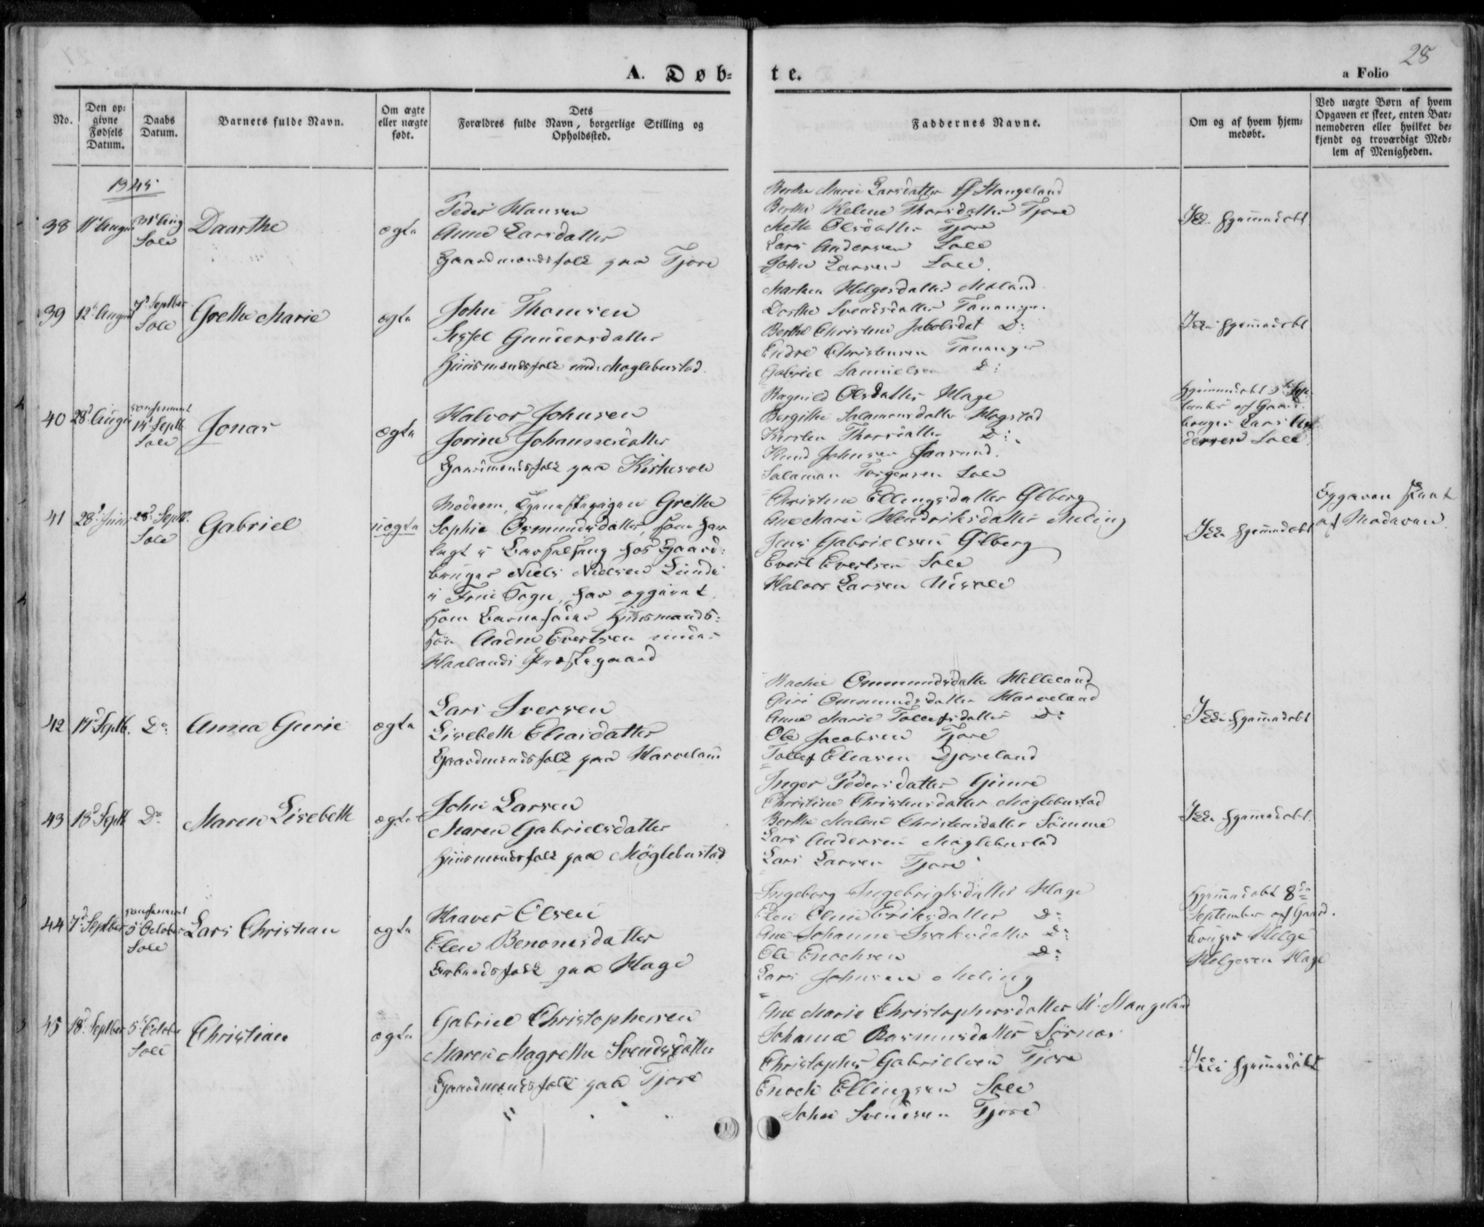 28
A. Døb=
te.
a Folio
No.
Den op=
givne
Fødsels
Datum.
Daabs
Datum.
Barnets fulde Navn.
Om ægte
eller uægte
født.
Dets
Forældres fulde Navn, borgerlige Stilling og
Opholdssted.
Faddernes Navne.
Om og af hvem hjem=
medøbt.
Ved uægte Børn af hvem
Opgaven er skeet, enten Bar=
nemoderen eller hvilket be=
kjendt og troværdigt Med=
lem af Menigheden.
1845
38
Sole
Daarthe
ægte
Peder Hansen
Anna Larsdatter
Gaardmandsfolk paa Tjore
Berthe Marie Larsdatter Stangeland
Berthe Helene Thorsdatter Tjore
Olsdatter Tjore
Lars Andersen Sole
John Larsen Sole.
Ikke hjemmedøbt
39
12te August
7de Septbr
Sole
Grethe Marie
ægte
John Thomsen
Sissel Gunersdatter
Huusmandsfolk under Moglebustad
Marthea Helgesdatter Meland
Dorthe Svendsdatter Tananger
Berthe Christine Jakobsdat Do
Endre Christensen Tananger
Gabriel Samuelsen Do
Ikke hjemmedøbt
40
28de August
confirmeret
14de Septb
Sole
Jonas
ægte
Halvor Johnsen
Jorine Johannesdatter
Gaardmandsfolk paa Kirkesole
Ragnild Olsdatter Hage
Birgithe Salamonsdatter Rægstad
Kirsten Thorsdatter Do
Knud Johnsen Jaasund.
Salamon Torgersen Sole
Hjemmedøbt
af Gaard=
bruger Lars An=
dersen Sole
41
28de Juni
28de Septb.
Sole
Gabriel
uægte
Moderen, Tjenestepigen Grethe
Sophie Osmundsdatter, som har
lagt i Barselseng hos Gaard=
bruger Niels Nielsen Lunde
i Sogn, har opgivet
som Barnefader Huusmands=
søn Aadne Evertsen under
Haalands Præstegaard
Christine Ellingsdatter Ølberg
Ane Marie Hendriksdatter Meling
Jens Gabrielsen Ølberg
Evert Evertsen Sole
Halvor Larsen Risnæs
Ikke hjemmedøbt
Opgaven skeet
af Moderen.
42
17de Septb.
Do
Anna Gurie
ægte
Lars Iversen
Lisebeth Eliasdatter
Gaardmandsfolk paa Harveland
Rachel Ommundsdatter Helleland
Guri Ommundsdatter Harveland
Anna Marie Tollefsdatter Do
Ole Jacobsen Tjore
Tollef Eliasen Joreland
Ikke hjemmedøbt
43
18de Septb
Do
Maren Lisebeth
ægte
John Larsen
Maren Gabrielsdatter
Huusmandsfolk paa Møglebustad
Inger Pedersdatter Gimre
Christine Christensdatter Møglebustad
Berthe Malene Christensdatter Sømme
Lars Andersen Møglebustad
Lars Larsen Tjore
Ikke hjemmedøbt
44
7de Septber
confirmeret
5te October
Sole
Lars Christian
ægte
Haaver Olsen
Elen Benonisdatter
Gaardmandsfolk paa Hage
Ingeborg Ingebrigtsdatter Hage
Elen Oline Eriksdatter Do
Ane Johanne Isaksdatter Do
Ole Enochsen Do
Lars Johnsen Meling
hjemmedøbt 8de
September af Gaard=
bruger Helge
Helgesen Hage
45
18de Septber
5te Octobr
Sole
Christian
ægte
Gabriel Christophersen
Maren Magrethe Svendsdatter
Gaardmandsfolk paa Tjore
Ane Marie Christophersdatter N. Stangeland
Johanna Rasmusdatter Sørnæs
Christopher Gabrielsen Tjore
Enoch Ellingsen Sole
John Svendsen Tjore
Ikke hjemmedøbt